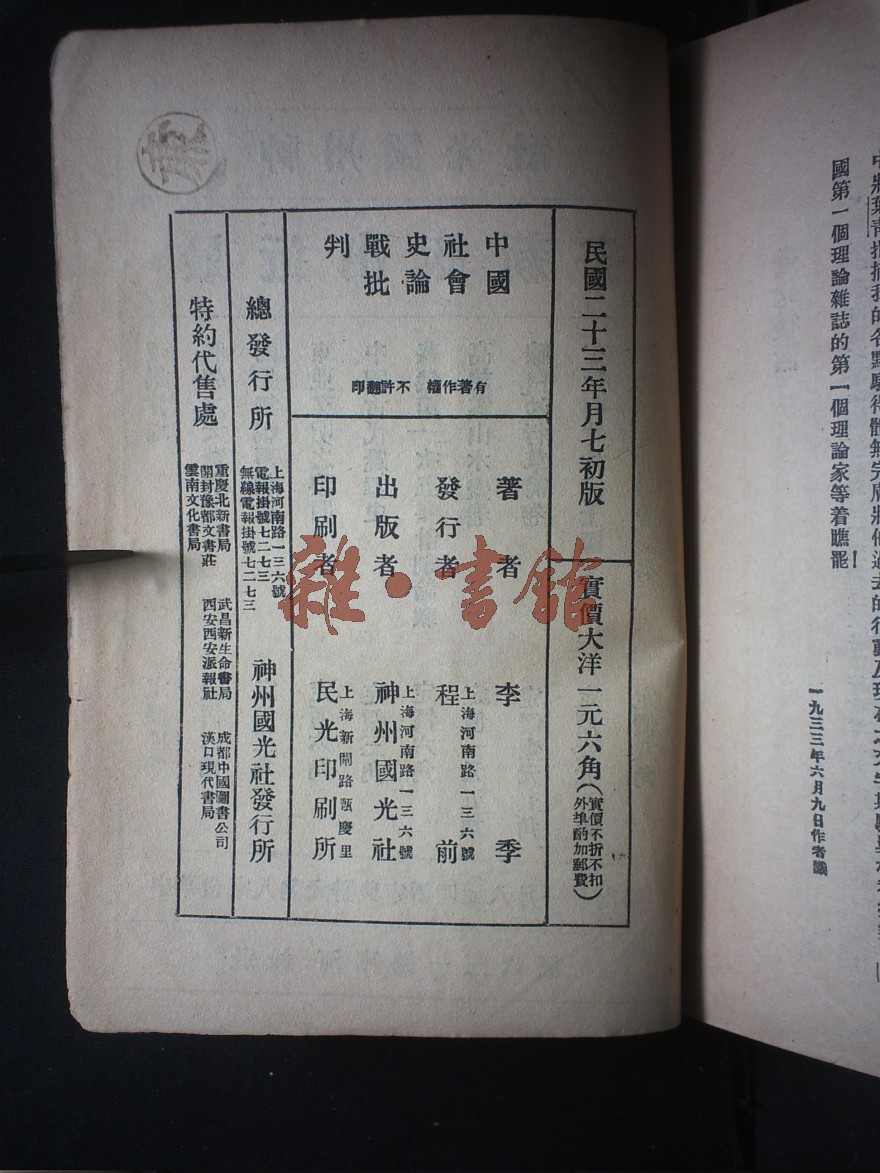 國第一個理論雜誌的第一個理論家等着瞧罷!
一九三三年六月九日作者識
民國二十三年月七初版
實價大洋一元六角(實價不折不扣 外埠酌加郵費)
中國
社會
史論
戰批
判
有著作權 不許翻印
著者 李季
發行者 程前
上海河南路一三六號
出版者 神州國光社
上海河南路一三六號
印刷者 民光印刷所
上海新閘路慶里
總發行所 神州國光社發行所
上海河南路一三六號
電報掛號七二七三
無線電報掛號七二七三
特約代售處
重慶北新書局 武昌新生命書局 成都中國圖書公司
開封豫郡文書莊 西安西安派報社 漢口現代書局
雲南文化書局
雜·書館